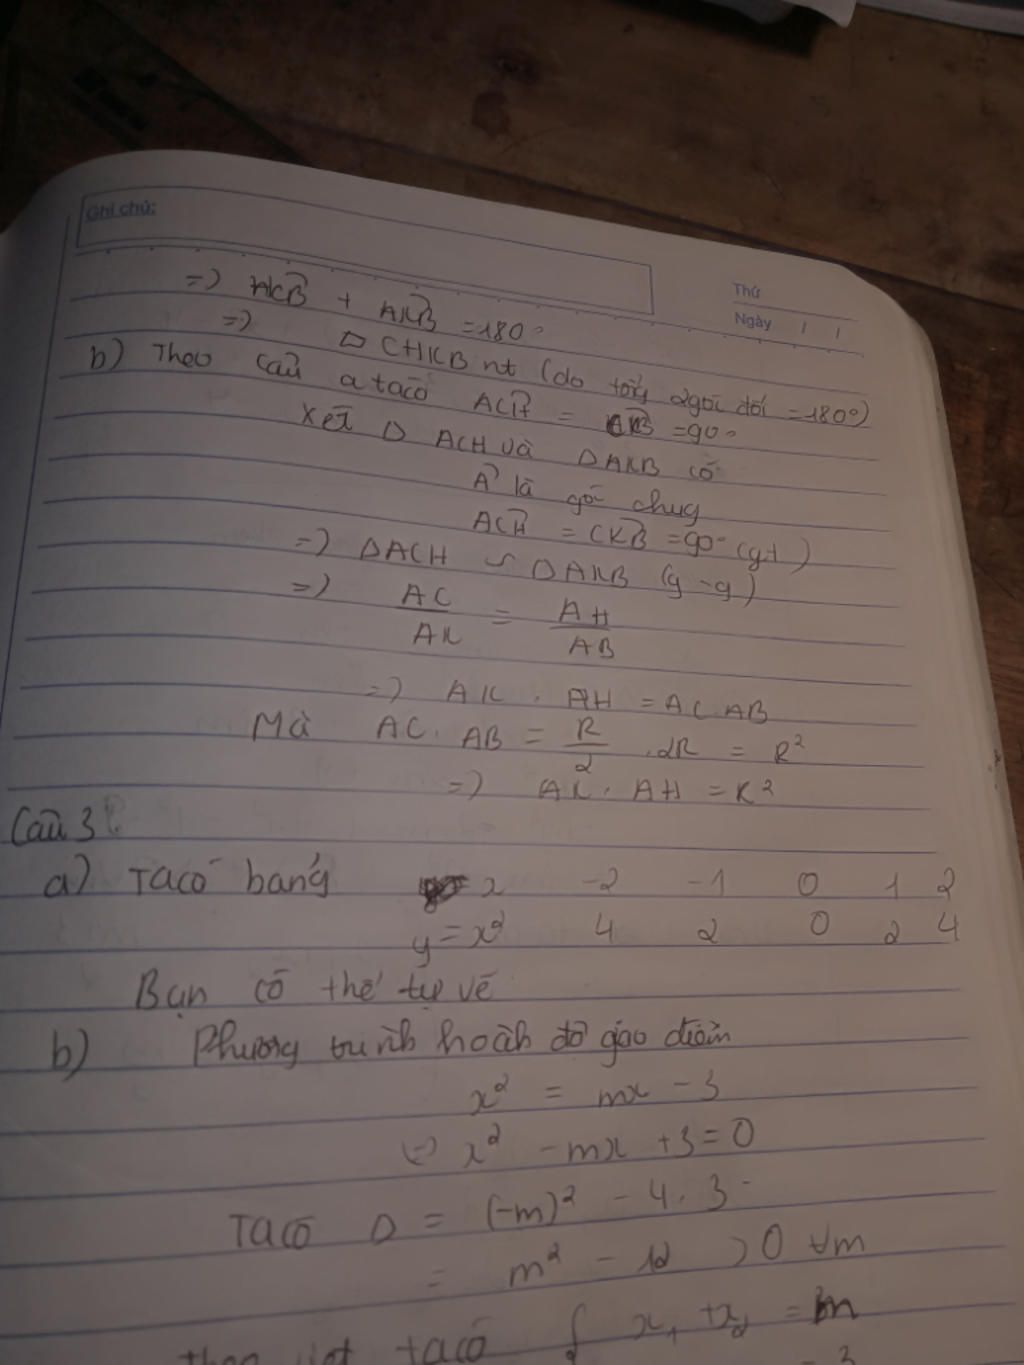 Ghi chú:
Thứ
Ngày / /
=> AKB + AKB = 180°
=> □ CHKB nt (do tổng 2 góc đối = 180°)
b) Theo câu a ta có ACH = AKB = 90°
Xét Δ ACH và Δ AKB có
A là góc chug
ACH = CKB = 90° (gt)
=> Δ ACH ∽ Δ AKB (g-g)
=> AC/AK = AH/AB
=> AK . AH = AC AB
Mà AC. AB = R/2 . 2R = R²
=> AK. AH = R²
Câu 3
a) Ta có bảng x -2 -1 0 1 2
y = x² 4 2 0 2 4
Bạn có thể tự vẽ
b) Phương trình hoành độ giao điểm
x² = mx - 3
(=) x² - mx + 3 = 0
Ta có Δ = (-m)² - 4. 3
= m² - 12 > 0 ∀m
theo viet ta có { x₁ + x₂ = m
3